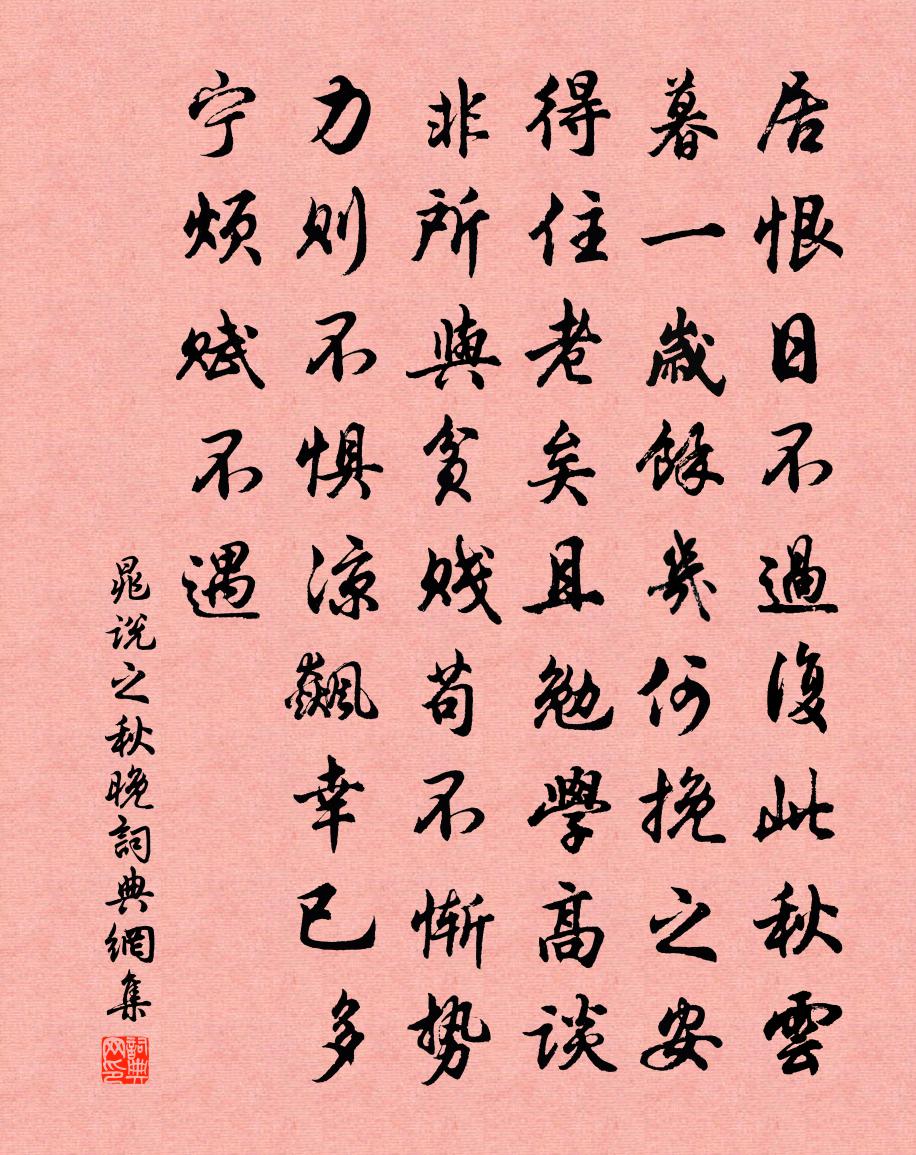 居恨日不過復此秋雲
暮一歲餘幾何挽之安
得住老矣且勉學高談
非所與貧賤苟不慚势
力则不惧凉飙幸已多
宁烦赋不遇
晁说之秋晚詞典網集
詞典网印